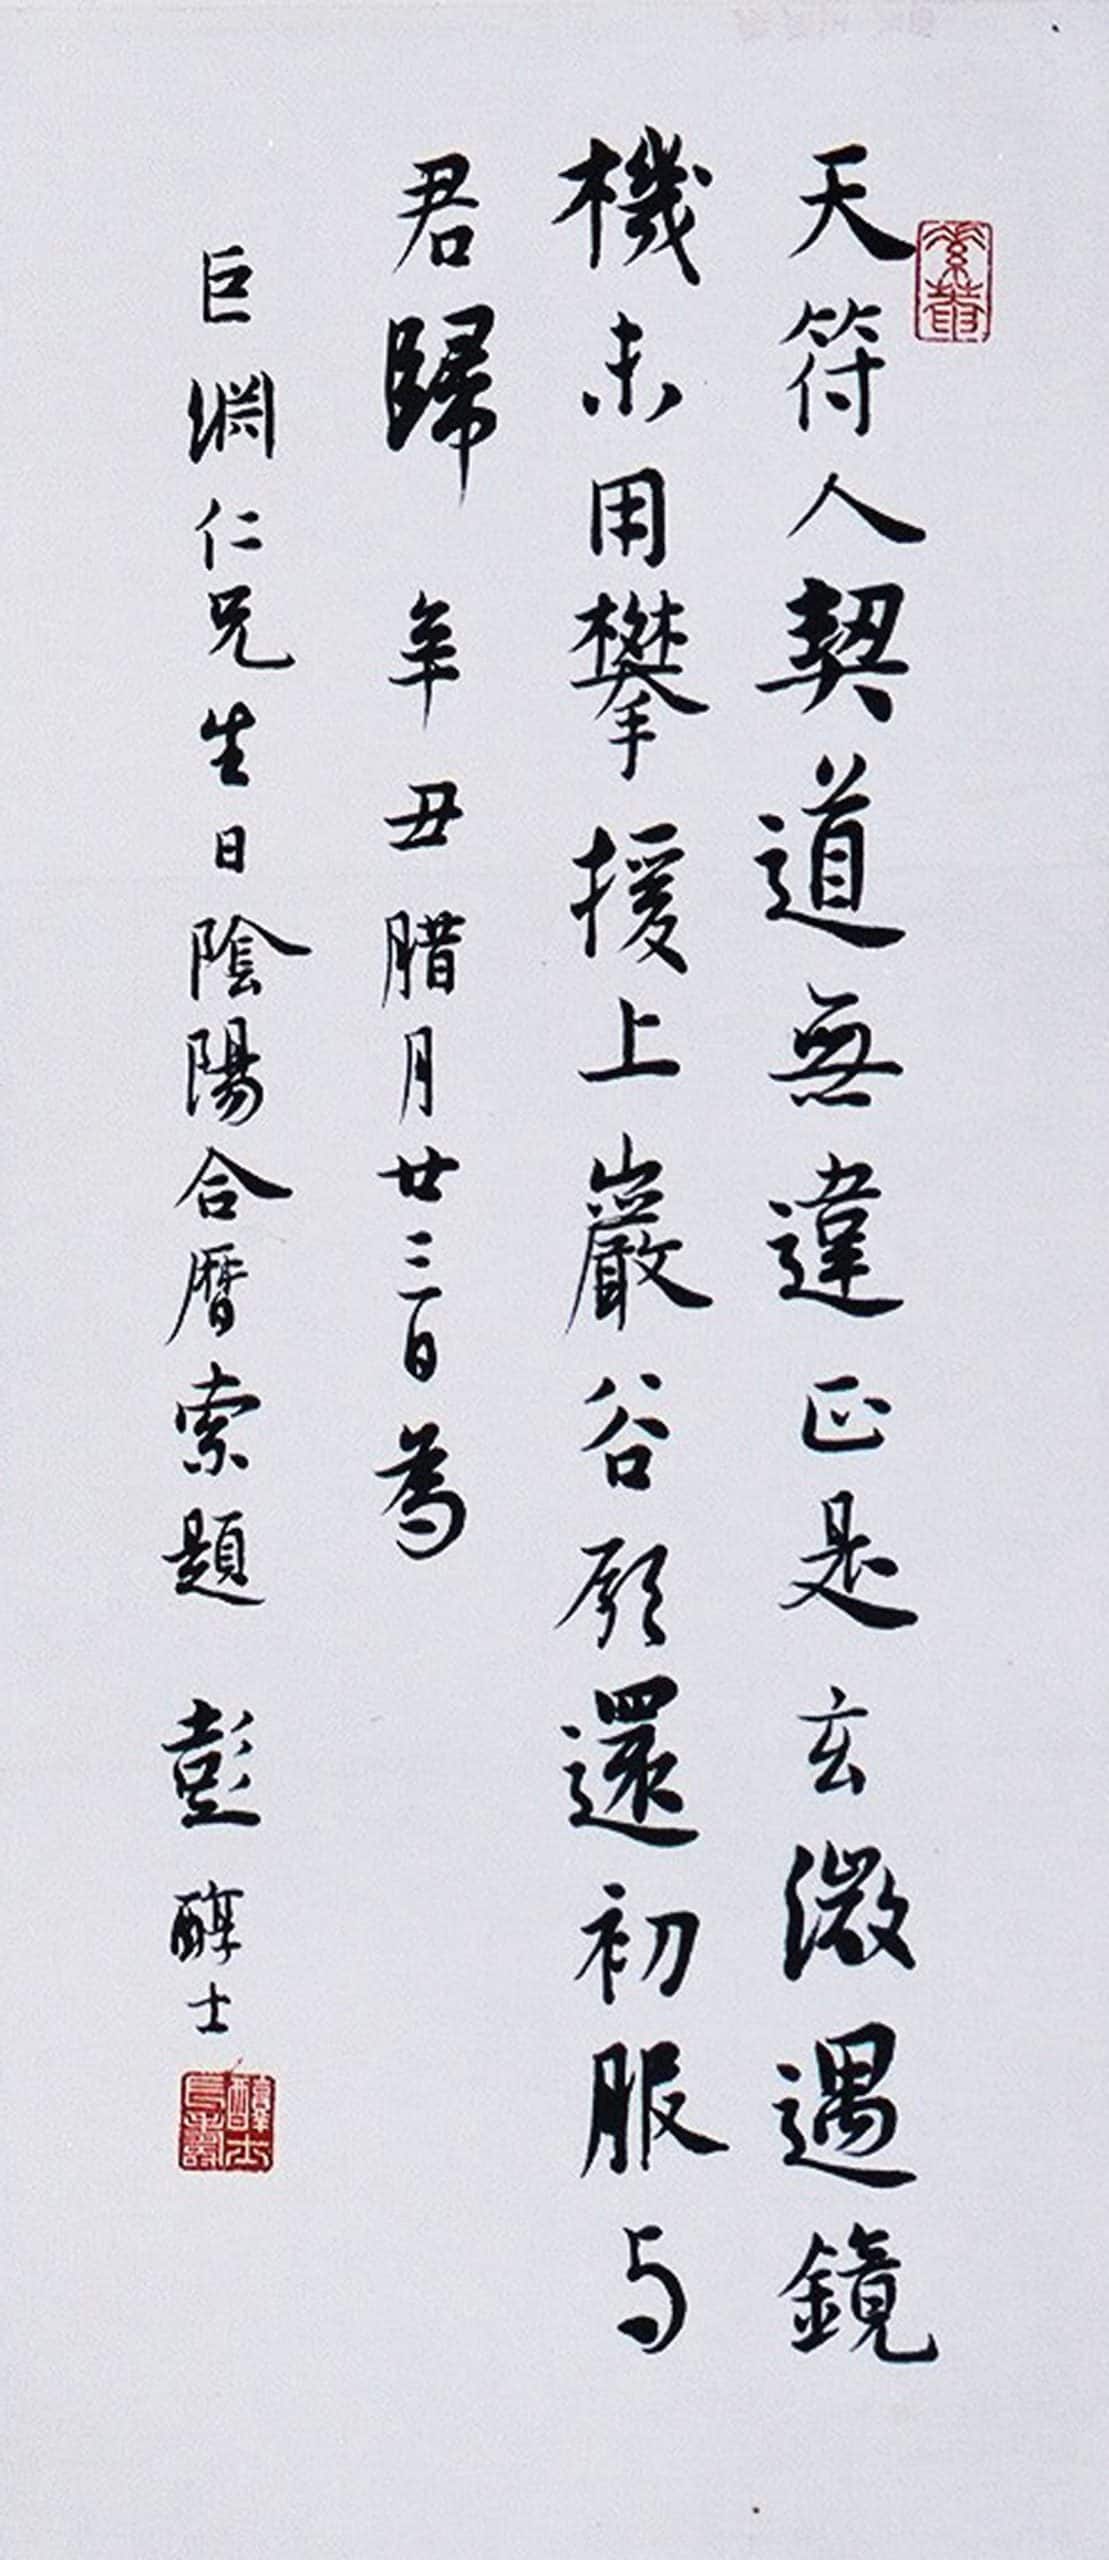 天符人契道無違正是玄微遇鏡
機未用攀援上巖谷願還初服与
君歸 辛丑腊月廿三日為
巨淵仁兄生日陰陽合暦索題 彭醇士